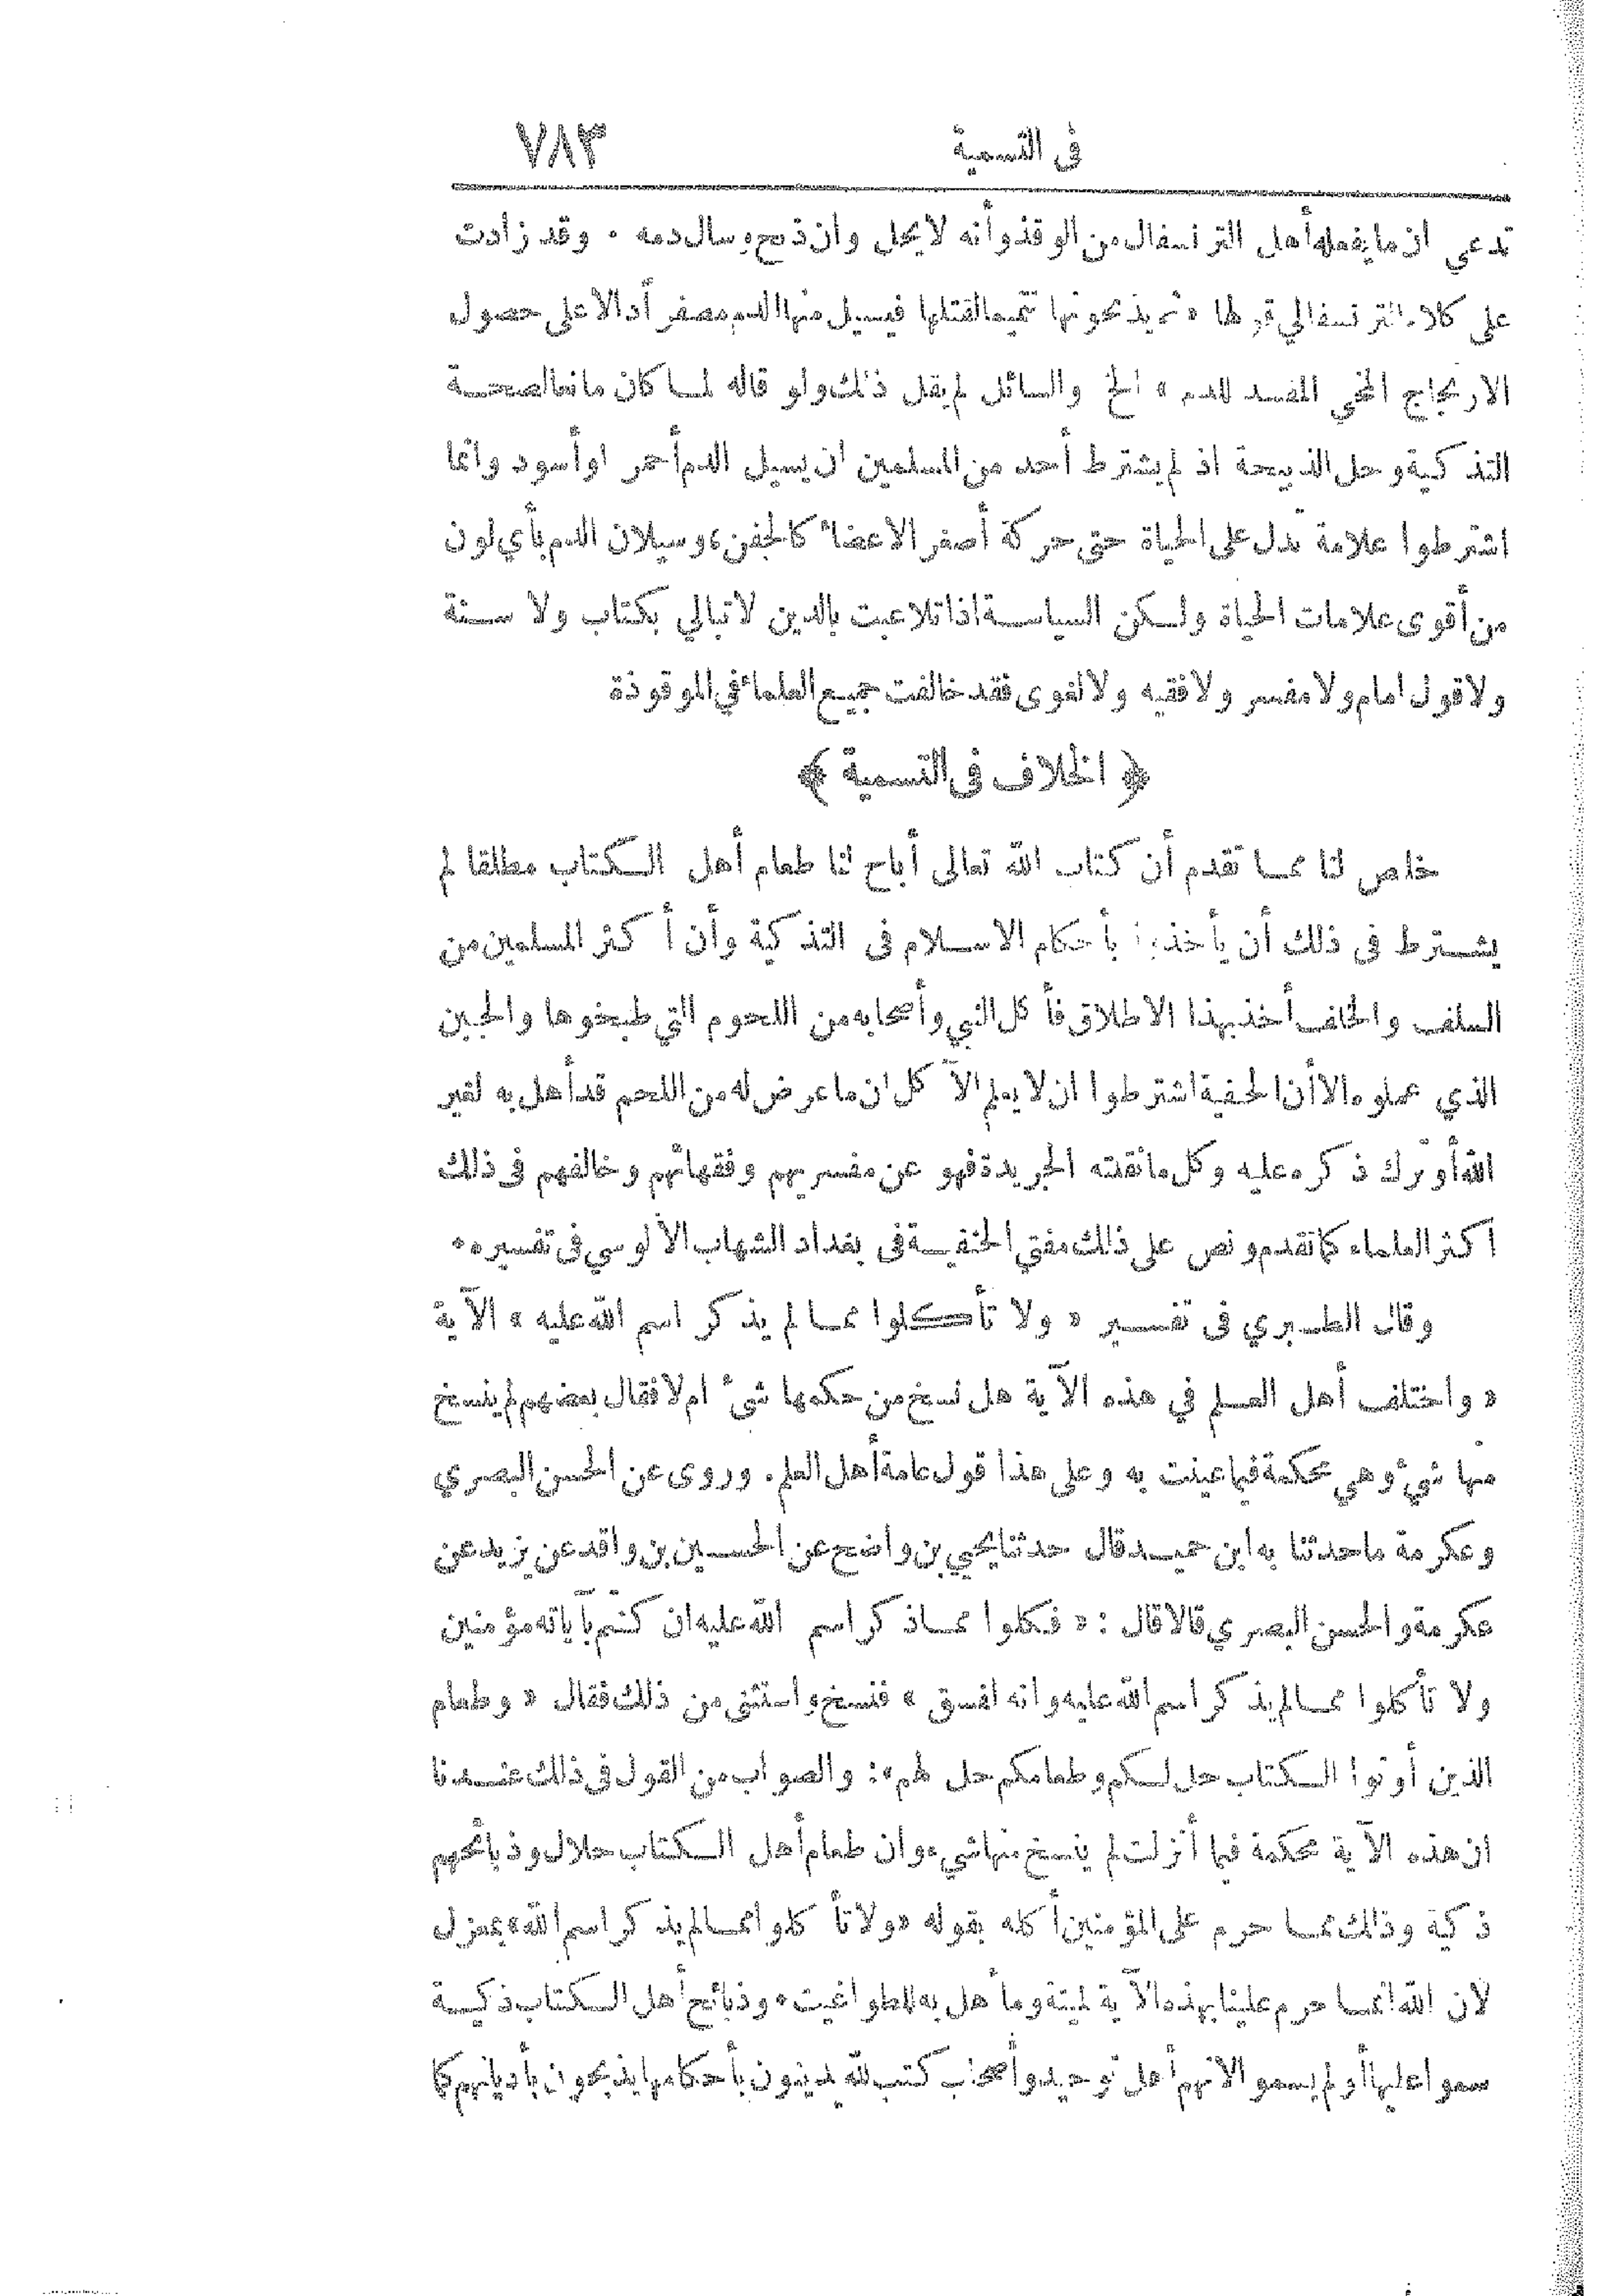 فى التسمية ٧٨٣
تدعي ان ما يفعله أهل الترنسفال من الوقذ وأنه لا يحل وان ذبح وسال دمه ٠ وقد زادت
على كلام الترنسفالي قولها « ثم يذبحونها تتميما لقتلها فيسيل منها الدم مصفرا دالا على حصول
الارتجاج المخي المفسد للدم » الخ والسائل لم يقل ذلك ولو قاله لمـا كان مانعا لصحـة
التذكية وحل الذبيحة اذ لم يشترط أحد من المسلمين ان يسيل الدم أحمر او أسود وانما
اشترطوا علامة تدل على الحياة حتى حركة أصغر الاعضاء كالجفن، وسيلان الدم بأي لون
من أقوى علامات الحياة ولـكن السياسـة اذا تلاعبت بالدين لا تبالي بكتاب ولا سـنة
ولا قول امام ولا مفسر ولا فقيه ولا لغوى فقد خالفت جميع العلماء في الموقوذة
﴿ الخلاف فى التسمية ﴾
خلص لنا ممـا تقدم أن كتاب الله تعالى أباح لنا طعام أهل الـكتاب مطلقا لم
يشـترط فى ذلك أن يأخذوا بأحكام الاسـلام فى التذكية وأن أكثر المسلمين من
السلف والخلف أخذ بهذا الاطلاق فأكل النبي وأصحابه من اللحوم التي طبخوها والجبن
الذي عملوه الا أن الحنفية اشترطوا ان لا يعلم الآكل ان ما عرض له من اللحم قد أهل به لغير
الله أو ترك ذكره عليه وكل ما نقلته الجريدة فهو عن مفسريهم وفقهائهم وخالفهم فى ذلك
أكثر العلماء كما تقدم ونص على ذلك مفتي الحنفيـة فى بغداد الشهاب الآلوسي فى تفسيره ٠
وقال الطـبري فى تفسـير « ولا تأكلوا ممـا لم يذكر اسم الله عليه » الآية
« واختلف أهل العـلم في هذه الآية هل نسخ من حكمها شئ ام لا فقال بعضهم لم ينسخ
منها شئ وهي محكمة فيما عينت به وعلى هذا قول عامة أهل العلم. وروى عن الحسن البصري
وعكرمة ما حدثنا به ابن حميـد قال حدثنا يحيي بن واضح عن الحسـين بن واقد عن يزيد عن
عكرمة والحسن البصري قالا قال : « فـكلوا ممـا ذكر اسم الله عليه ان كنتم بآياته مؤمنين
ولا تأكلوا ممـا لم يذكر اسم الله عليه وانه لفسق » فنسخ واستثنى من ذلك فقال « وطعام
الذين أوتوا الـكتاب حل لـكم وطعامكم حل لهم »: والصواب من القول فى ذلك عنـدنا
ان هذه الآية محكمة فيما أنزلت لم ينسخ منها شيء وان طعام أهل الـكتاب حلال وذبائحهم
ذكية وذلك ممـا حرم على المؤمنين أكله بقوله «ولا تأكلوا ممـا لم يذكر اسم الله» بمعزل
لان الله انمـا حرم علينا بهذه الآية الميتة وما أهل به للطواغيت، وذبائح أهل الـكتاب ذكيـة
سموا عليها أو لم يسموا لانهم أهل توحيد وأصحاب كتب لله يدينون بأحكامها يذبحون بأديانهم كما